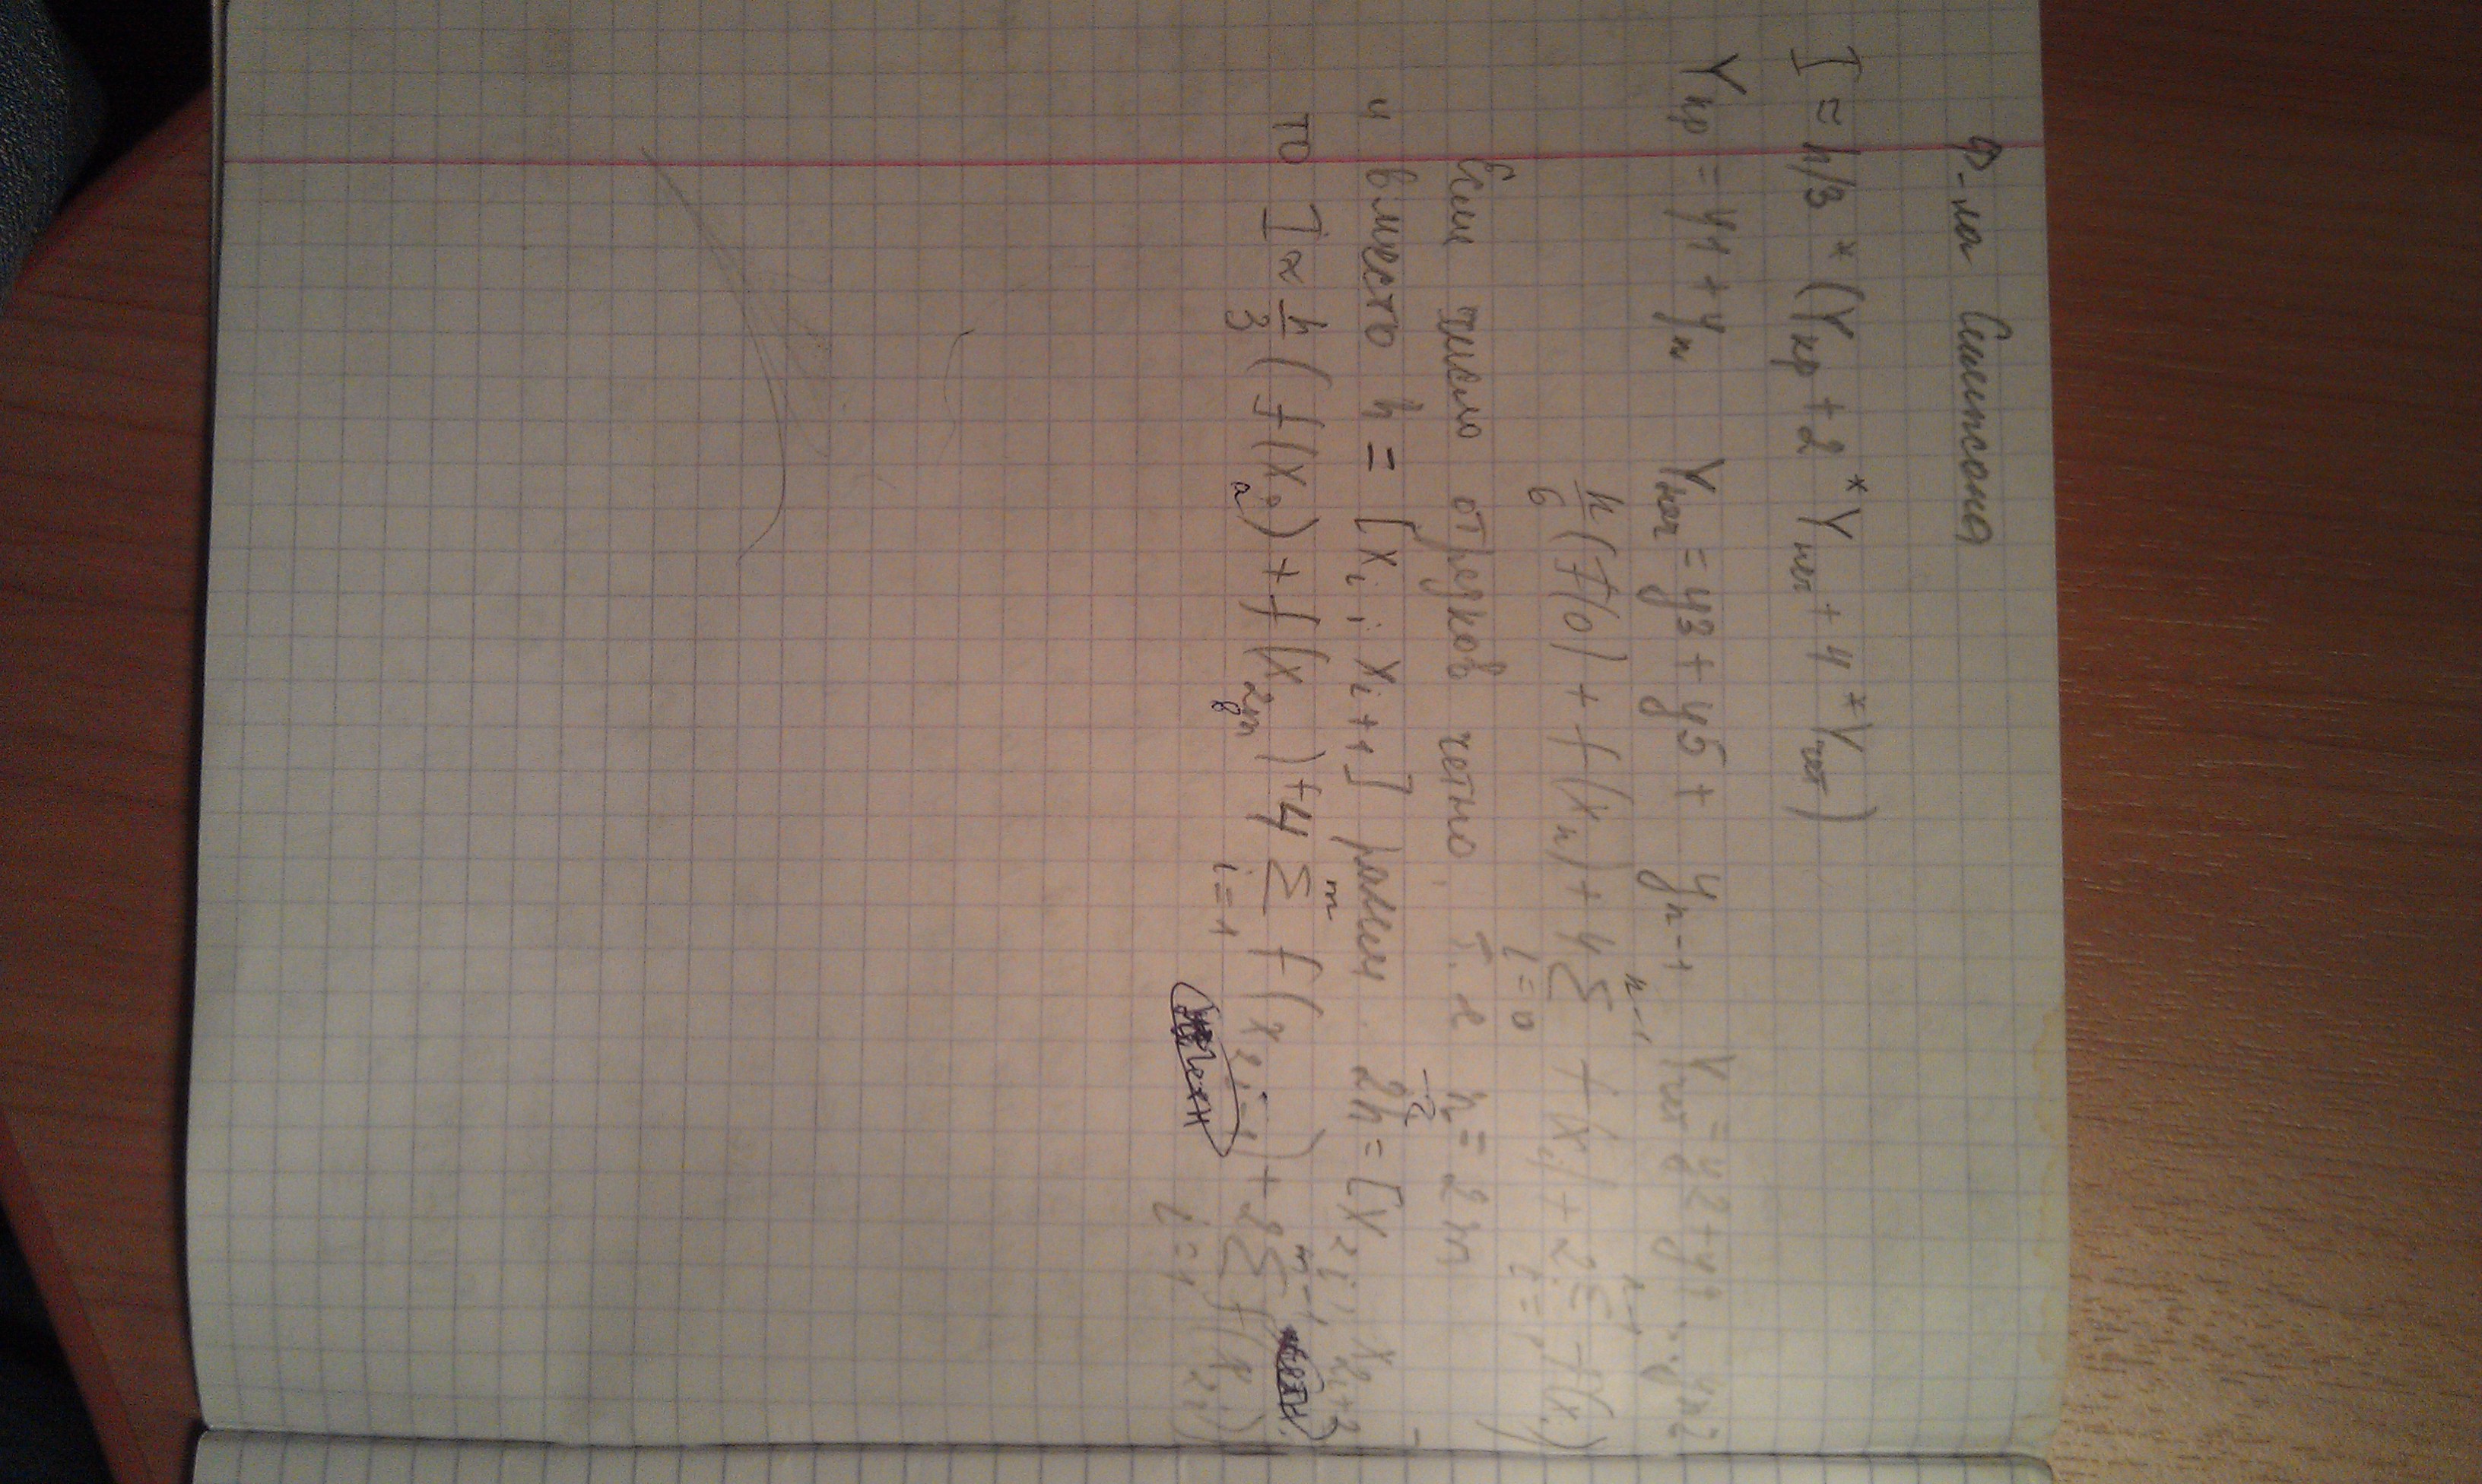 Ф-ла Симпсона
I ≈ h/3 * (Yкр + 2 * Yнеч + 4 * Yчет)
Yкр = y1 + yn Yнеч = y3 + y5 + yn-1 Yчет = y2 + y4
h/6 (f(0) + f(xn) + 4 ∑ i=0 n-1
Если число отрезков четно, т.е n = 2m
и вместо h = [xi ; xi+1] возьмем 2h = [x2i, x2i+2]
то I ≈ h/3 (f(x0) + f(x2m) + 4 ∑ i=1 m f(x2i-1) + 2 ∑ i=1 m-1 f(x2i))
a в